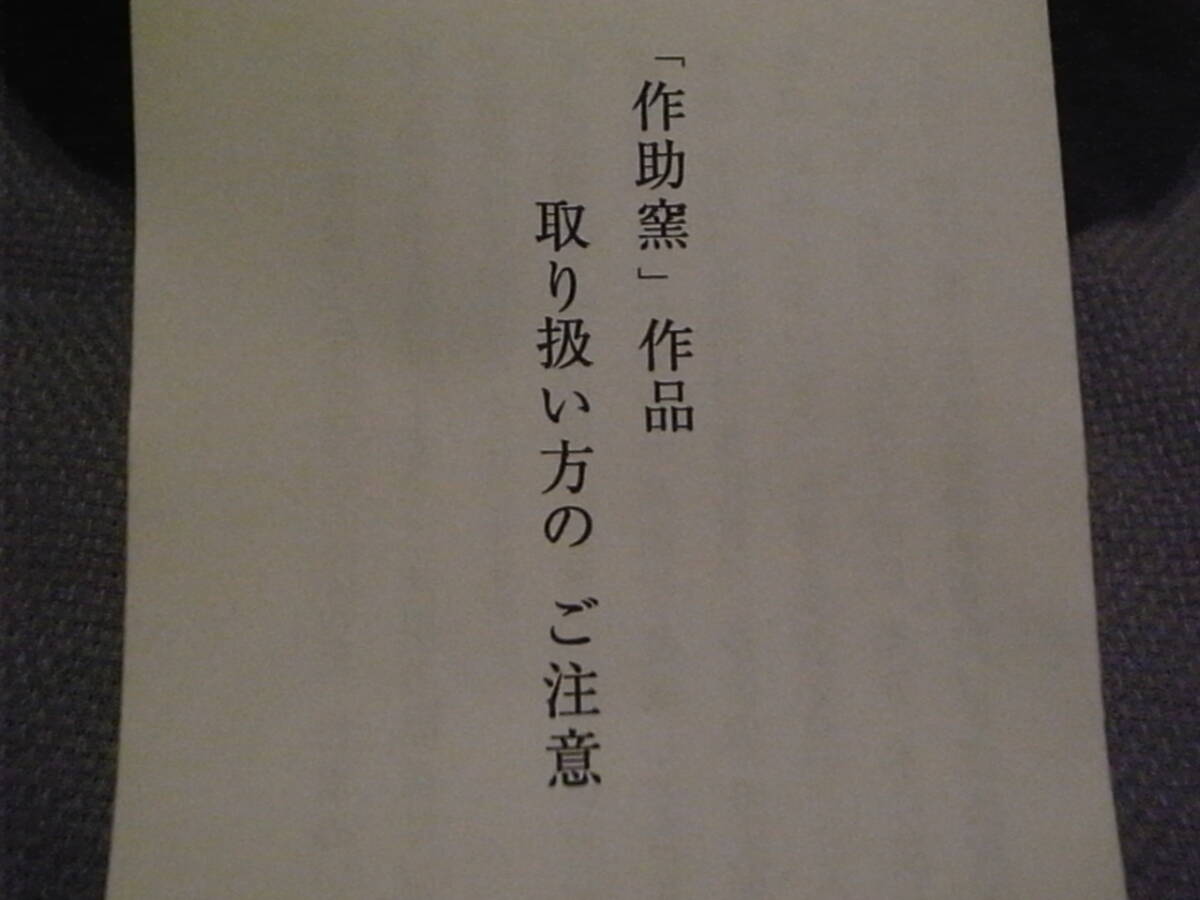 「作助窯」作品
取り扱い方の ご注意